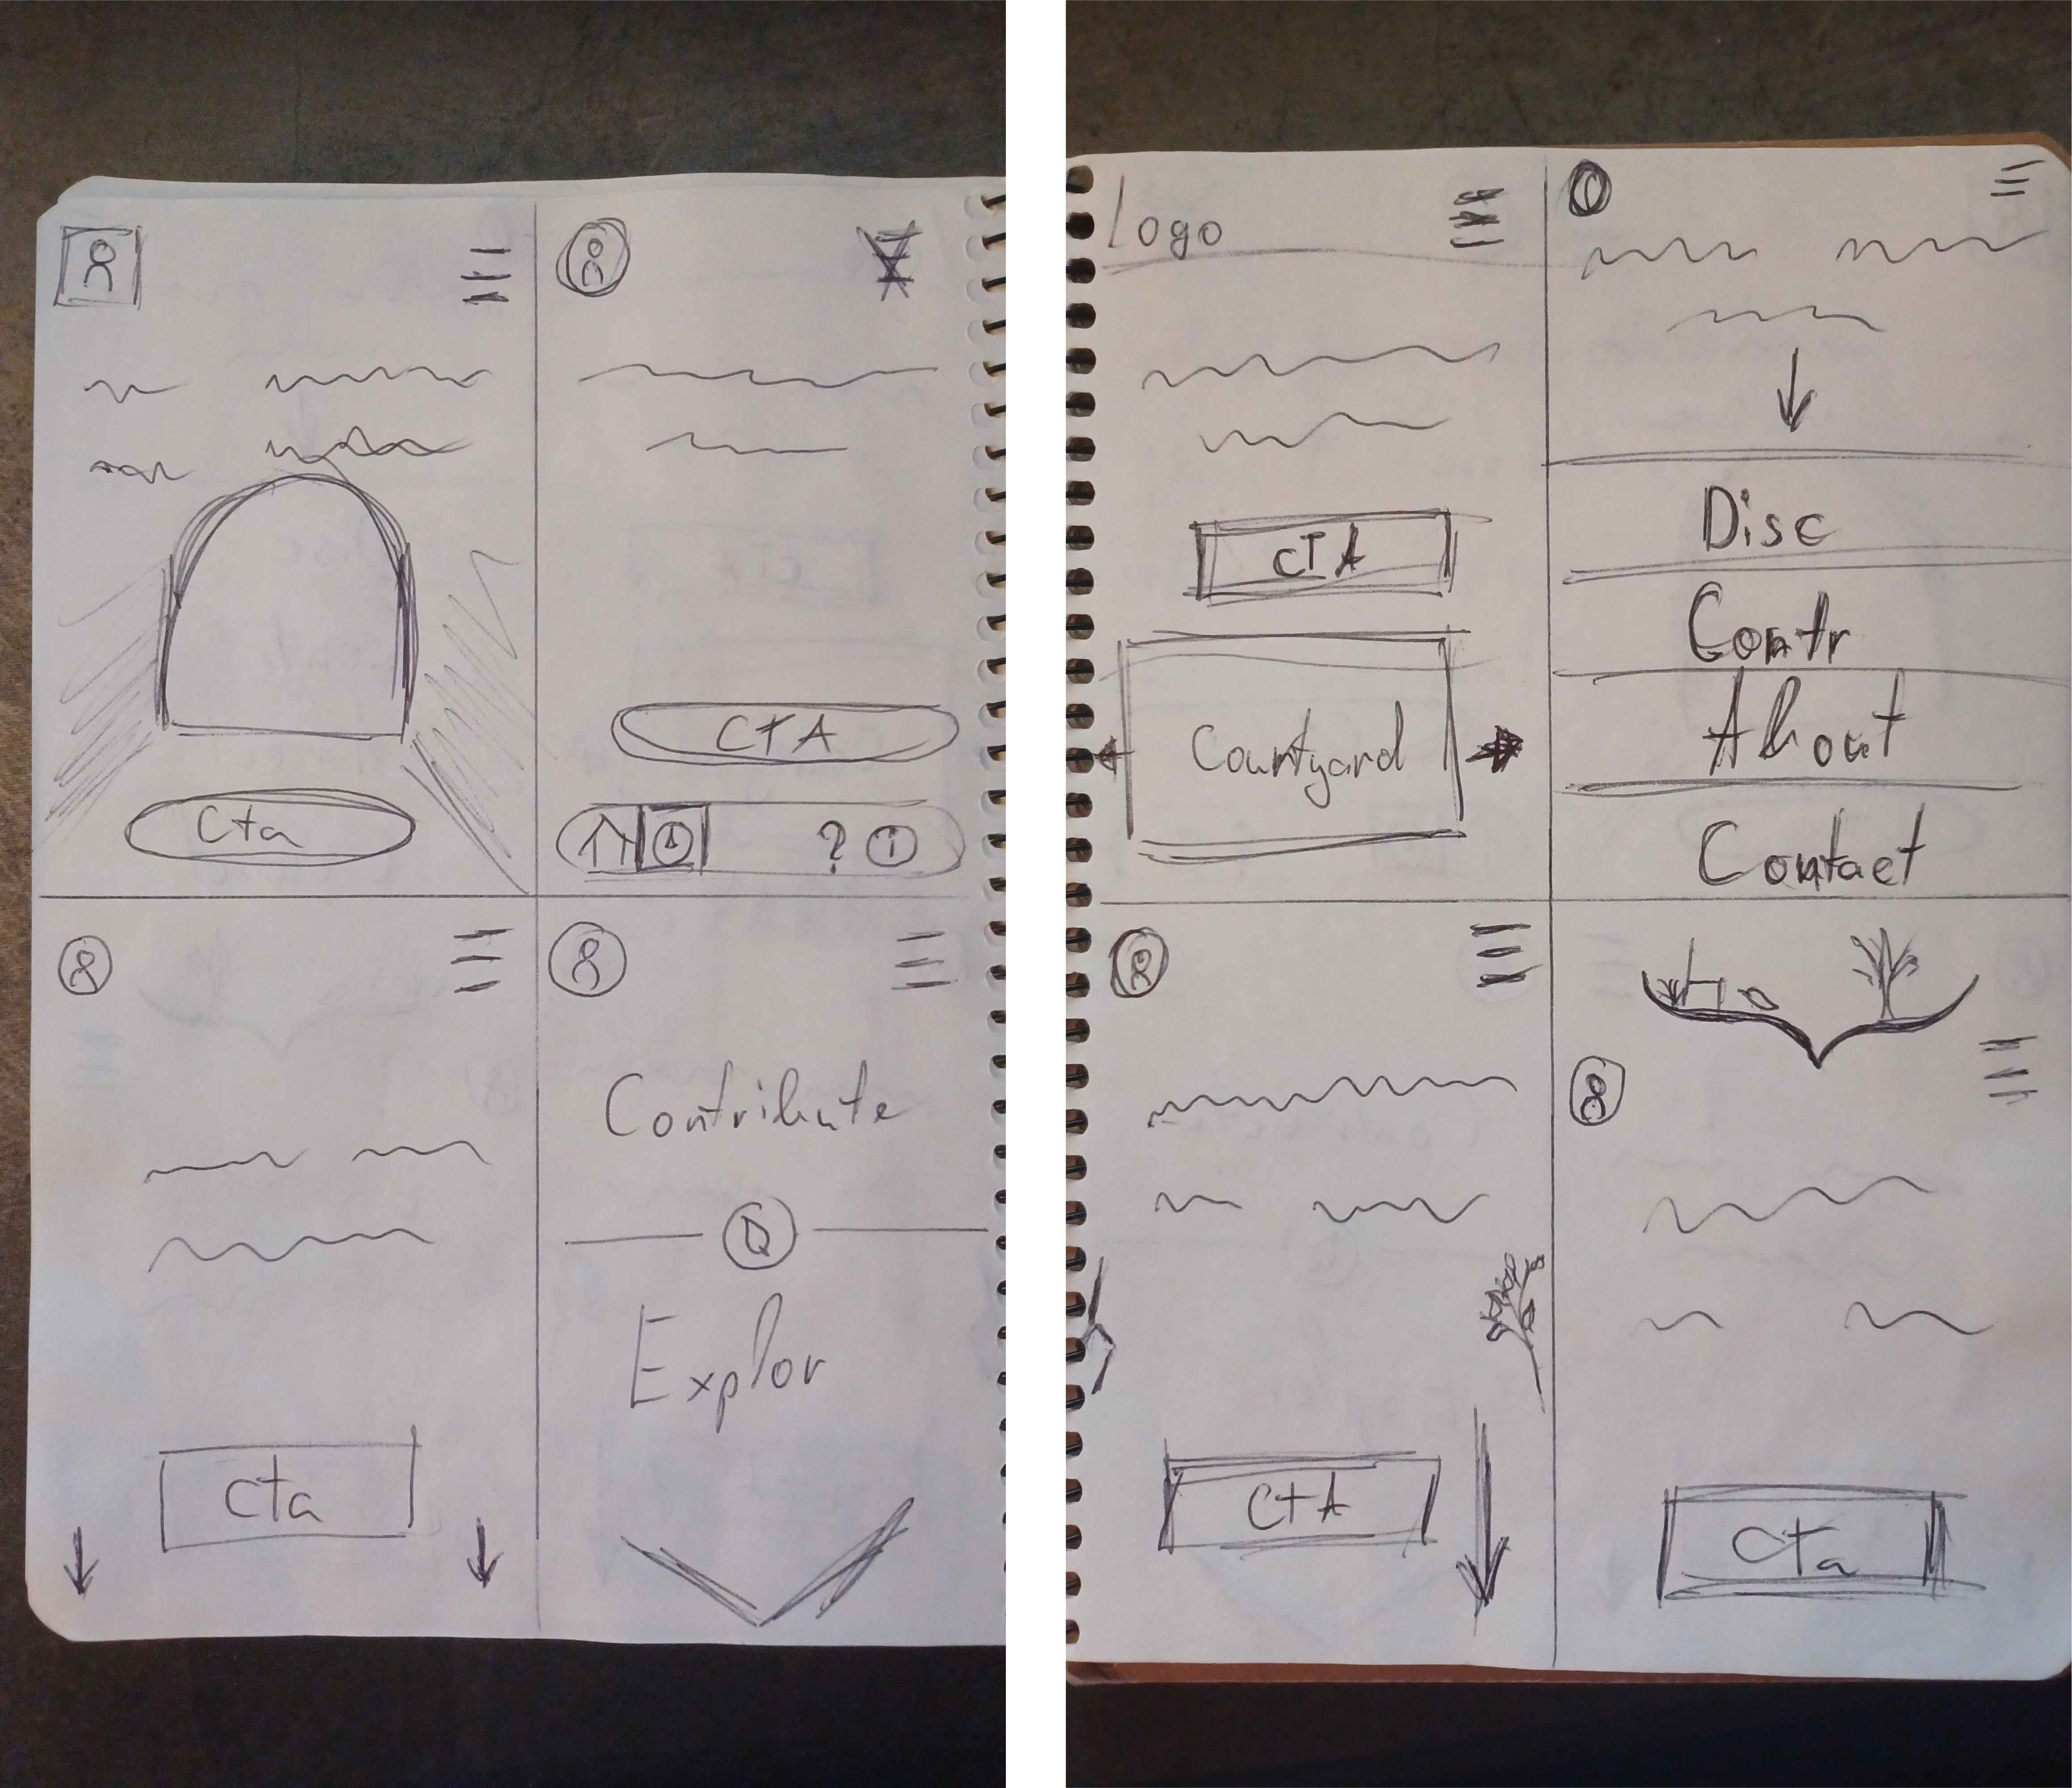 Cta
CTA
?
Cta
Contribute
Explor
Logo
CTA
Courtyard
Disc
Contr
About
Contact
CTA
Cta